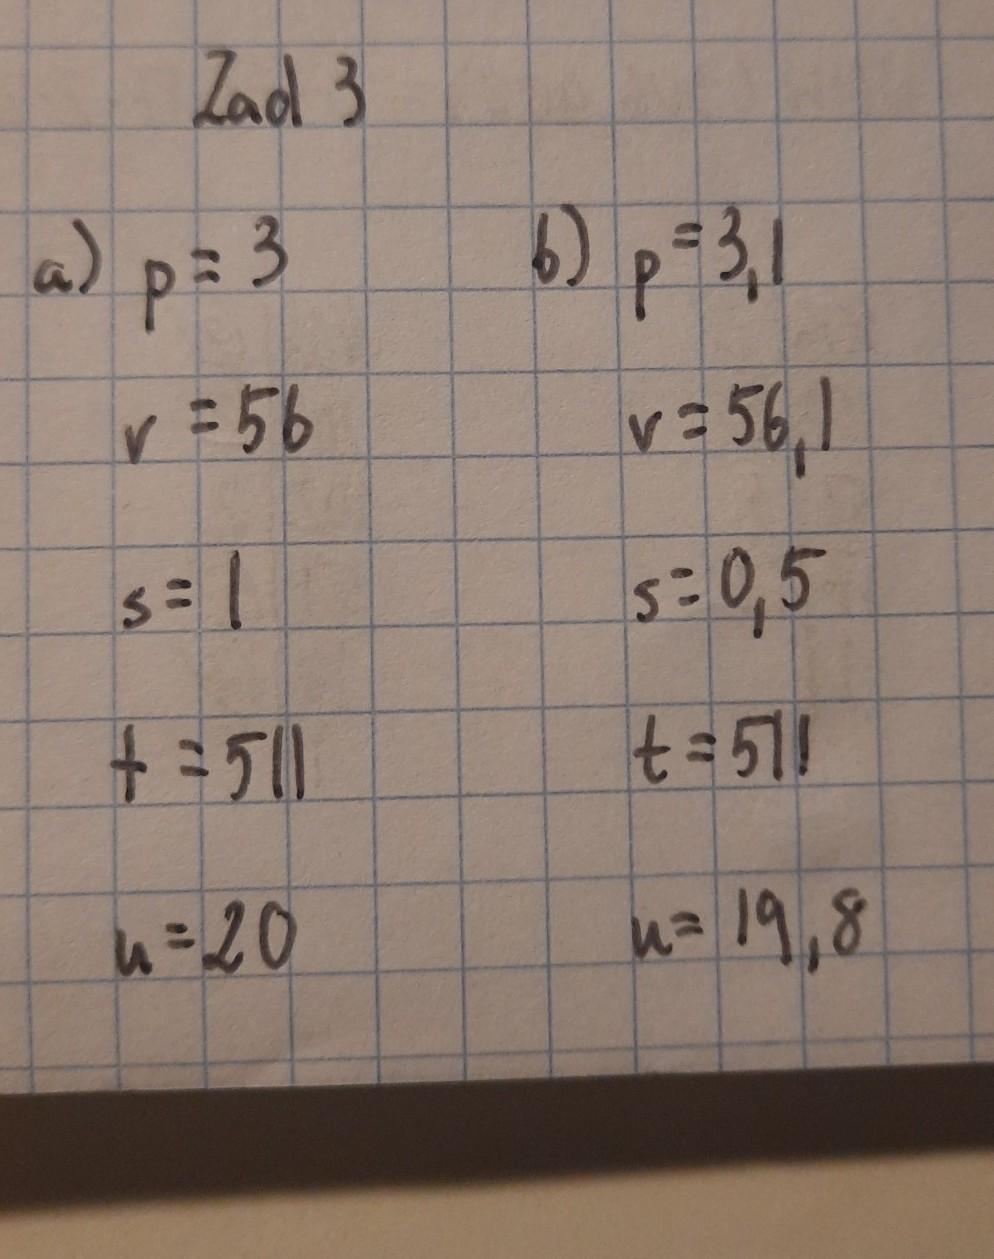 Zad 3
a) p = 3 b) p = 3,1
v = 56 v = 56,1
s = 1 s = 0,5
t = 511 t = 511
u = 20 u = 19,8